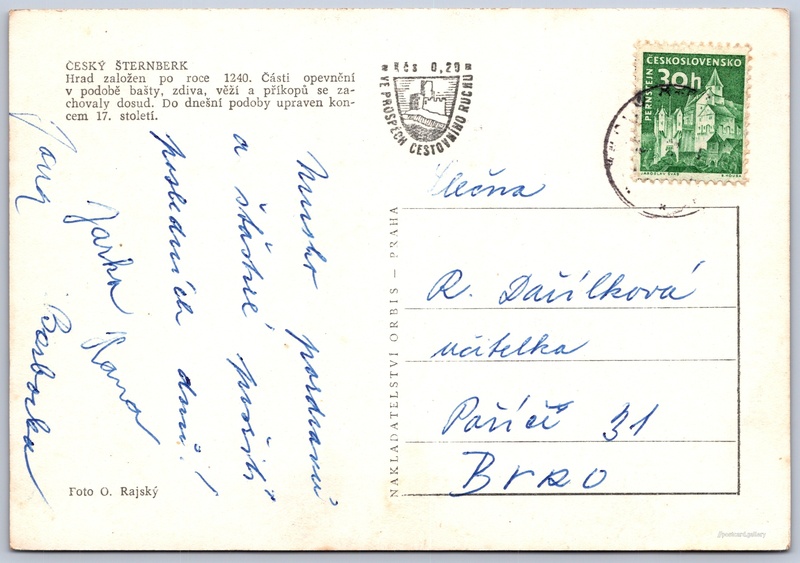 ČESKÝ ŠTERNBERK
Hrad založen po roce 1240. Části opevnění
v podobě bašty, zdiva, věží a příkopů se za-
chovaly dosud. Do dnešní podoby upraven kon-
cem 17. století.
Kčs 0,20
VE PROSPĚCH CESTOVNÍHO RUCHU
ČESKOSLOVENSKO
30h
PERNŠTEJN
JAROSLAV
Slečna
R. Dašílková
učitelka
Poříčí 31
Brno
NAKLADATELSTVÍ ORBIS — PRAHA
pozdravů
a šťastné prožití
posledních dnů!
Jarka Hana
Foto O. Rajský